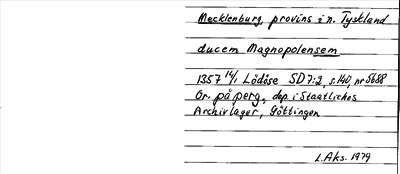 Mecklenburg, provins i n. Tyskland
ducem Magnopolensem
1357 14/1 Lödöse SD 7:2, s. 140, nr 5688
Or. på perg., dep. i Staatliches
Archivlager, Göttingen
L. Aks. 1979